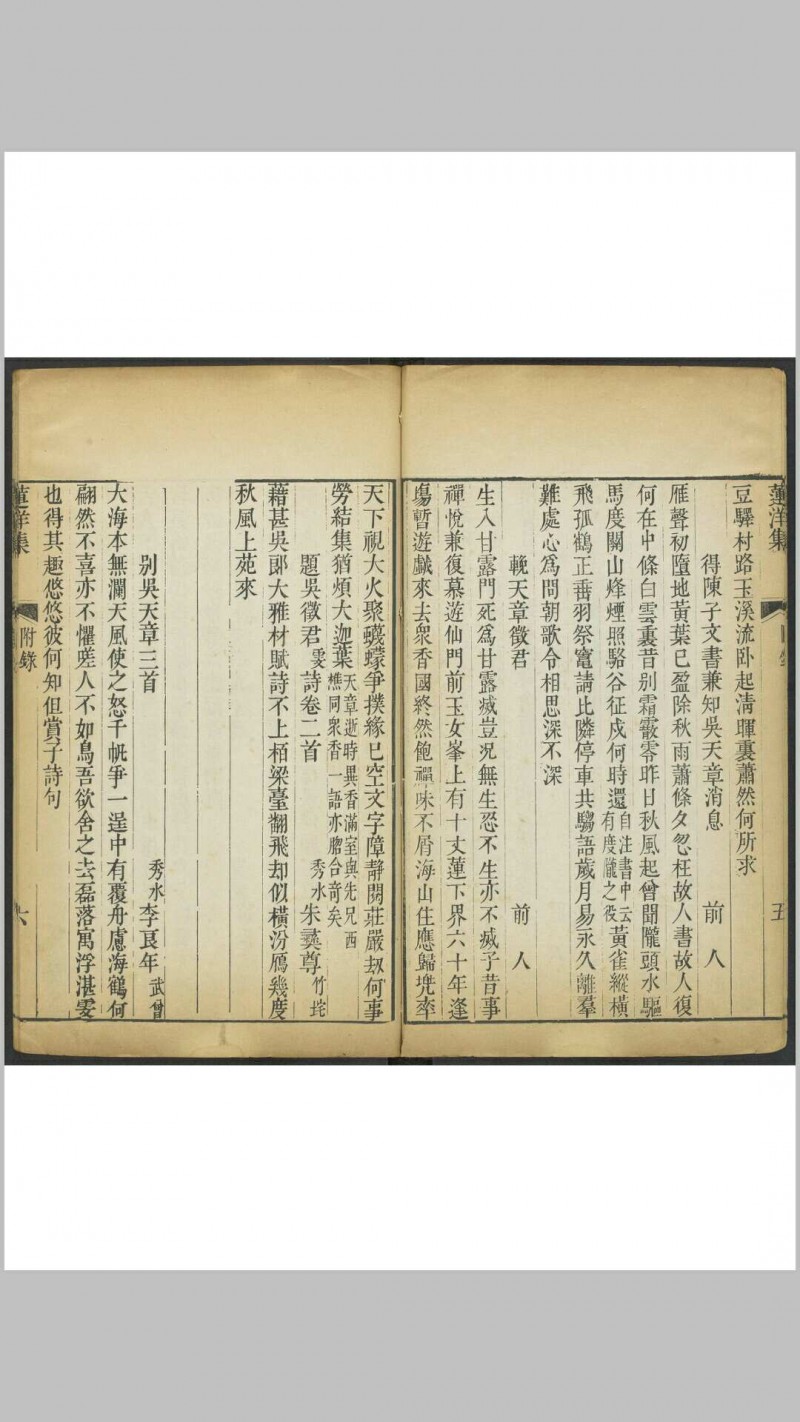 蓮洋集
五
豆驛村路玉溪流卧起淸暉裏蕭然何所求
得陳子文書兼知吳天章消息
前人
雁聲初墮地黃葉已盈除秋雨蕭條夕忽枉故人書故人復
何在中條白雲裏昔别霜霰零昨日秋風起曾聞隴頭水驅
馬度關山烽煙照駱谷征戍何時還自注書中云有度隴之役黃雀縱橫
飛孤鶴正番羽祭竈請比隣停車共騶語歲月易永久離羣
難處心爲問朝歌令相思深不深
輓天章徵君
前人
生入甘露門死爲甘露滅豈況無生忍不生亦不滅子昔事
禪悅兼復慕遊仙門前玉女峯上有十丈蓮下界六十年逢
塲暫遊戲來去衆香國終然飽禪味不屑海山住應歸兜率
天下視大火聚蠛蠓爭撲緣已空文字障靜閱莊嚴刼何事
勞結集猶煩大迦葉天章逝時異香滿室與先兄西樵同衆香一語亦謄合奇矣
題吳徵君雯詩卷二首
秀水朱彞尊竹垞
藉甚吳郎大雅材賦詩不上栢梁臺翻飛却似橫汾鴈幾度
秋風上苑來
别吳天章三首
秀水李良年武曾
大海本無瀾天風使之怒千帆爭一逞中有覆舟慮海鶴何
翩然不喜亦不懼嗟人不如鳥吾欲舍之去磊落寓浮湛雯
也得其趣悠悠彼何知但賞子詩句
蓮洋集
附錄
六